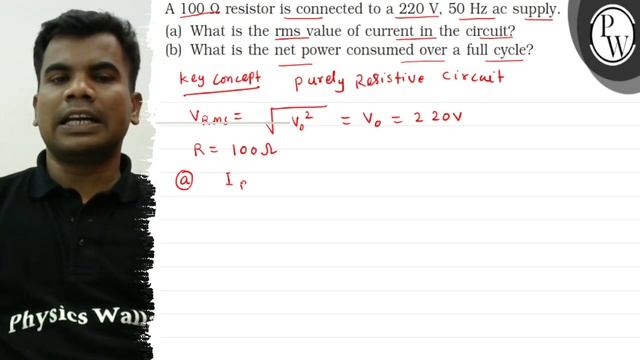 A 100 Ω resistor is connected to a 220 V, 50 Hz ac supply.
(a) What is the rms value of current in the circuit?
(b) What is the net power consumed over a full cycle?
Key concept Purely Resistive Circuit
V_RMS = √V₀² = V₀ = 220V
R = 100Ω
(a) I
P
W
Physics Wall